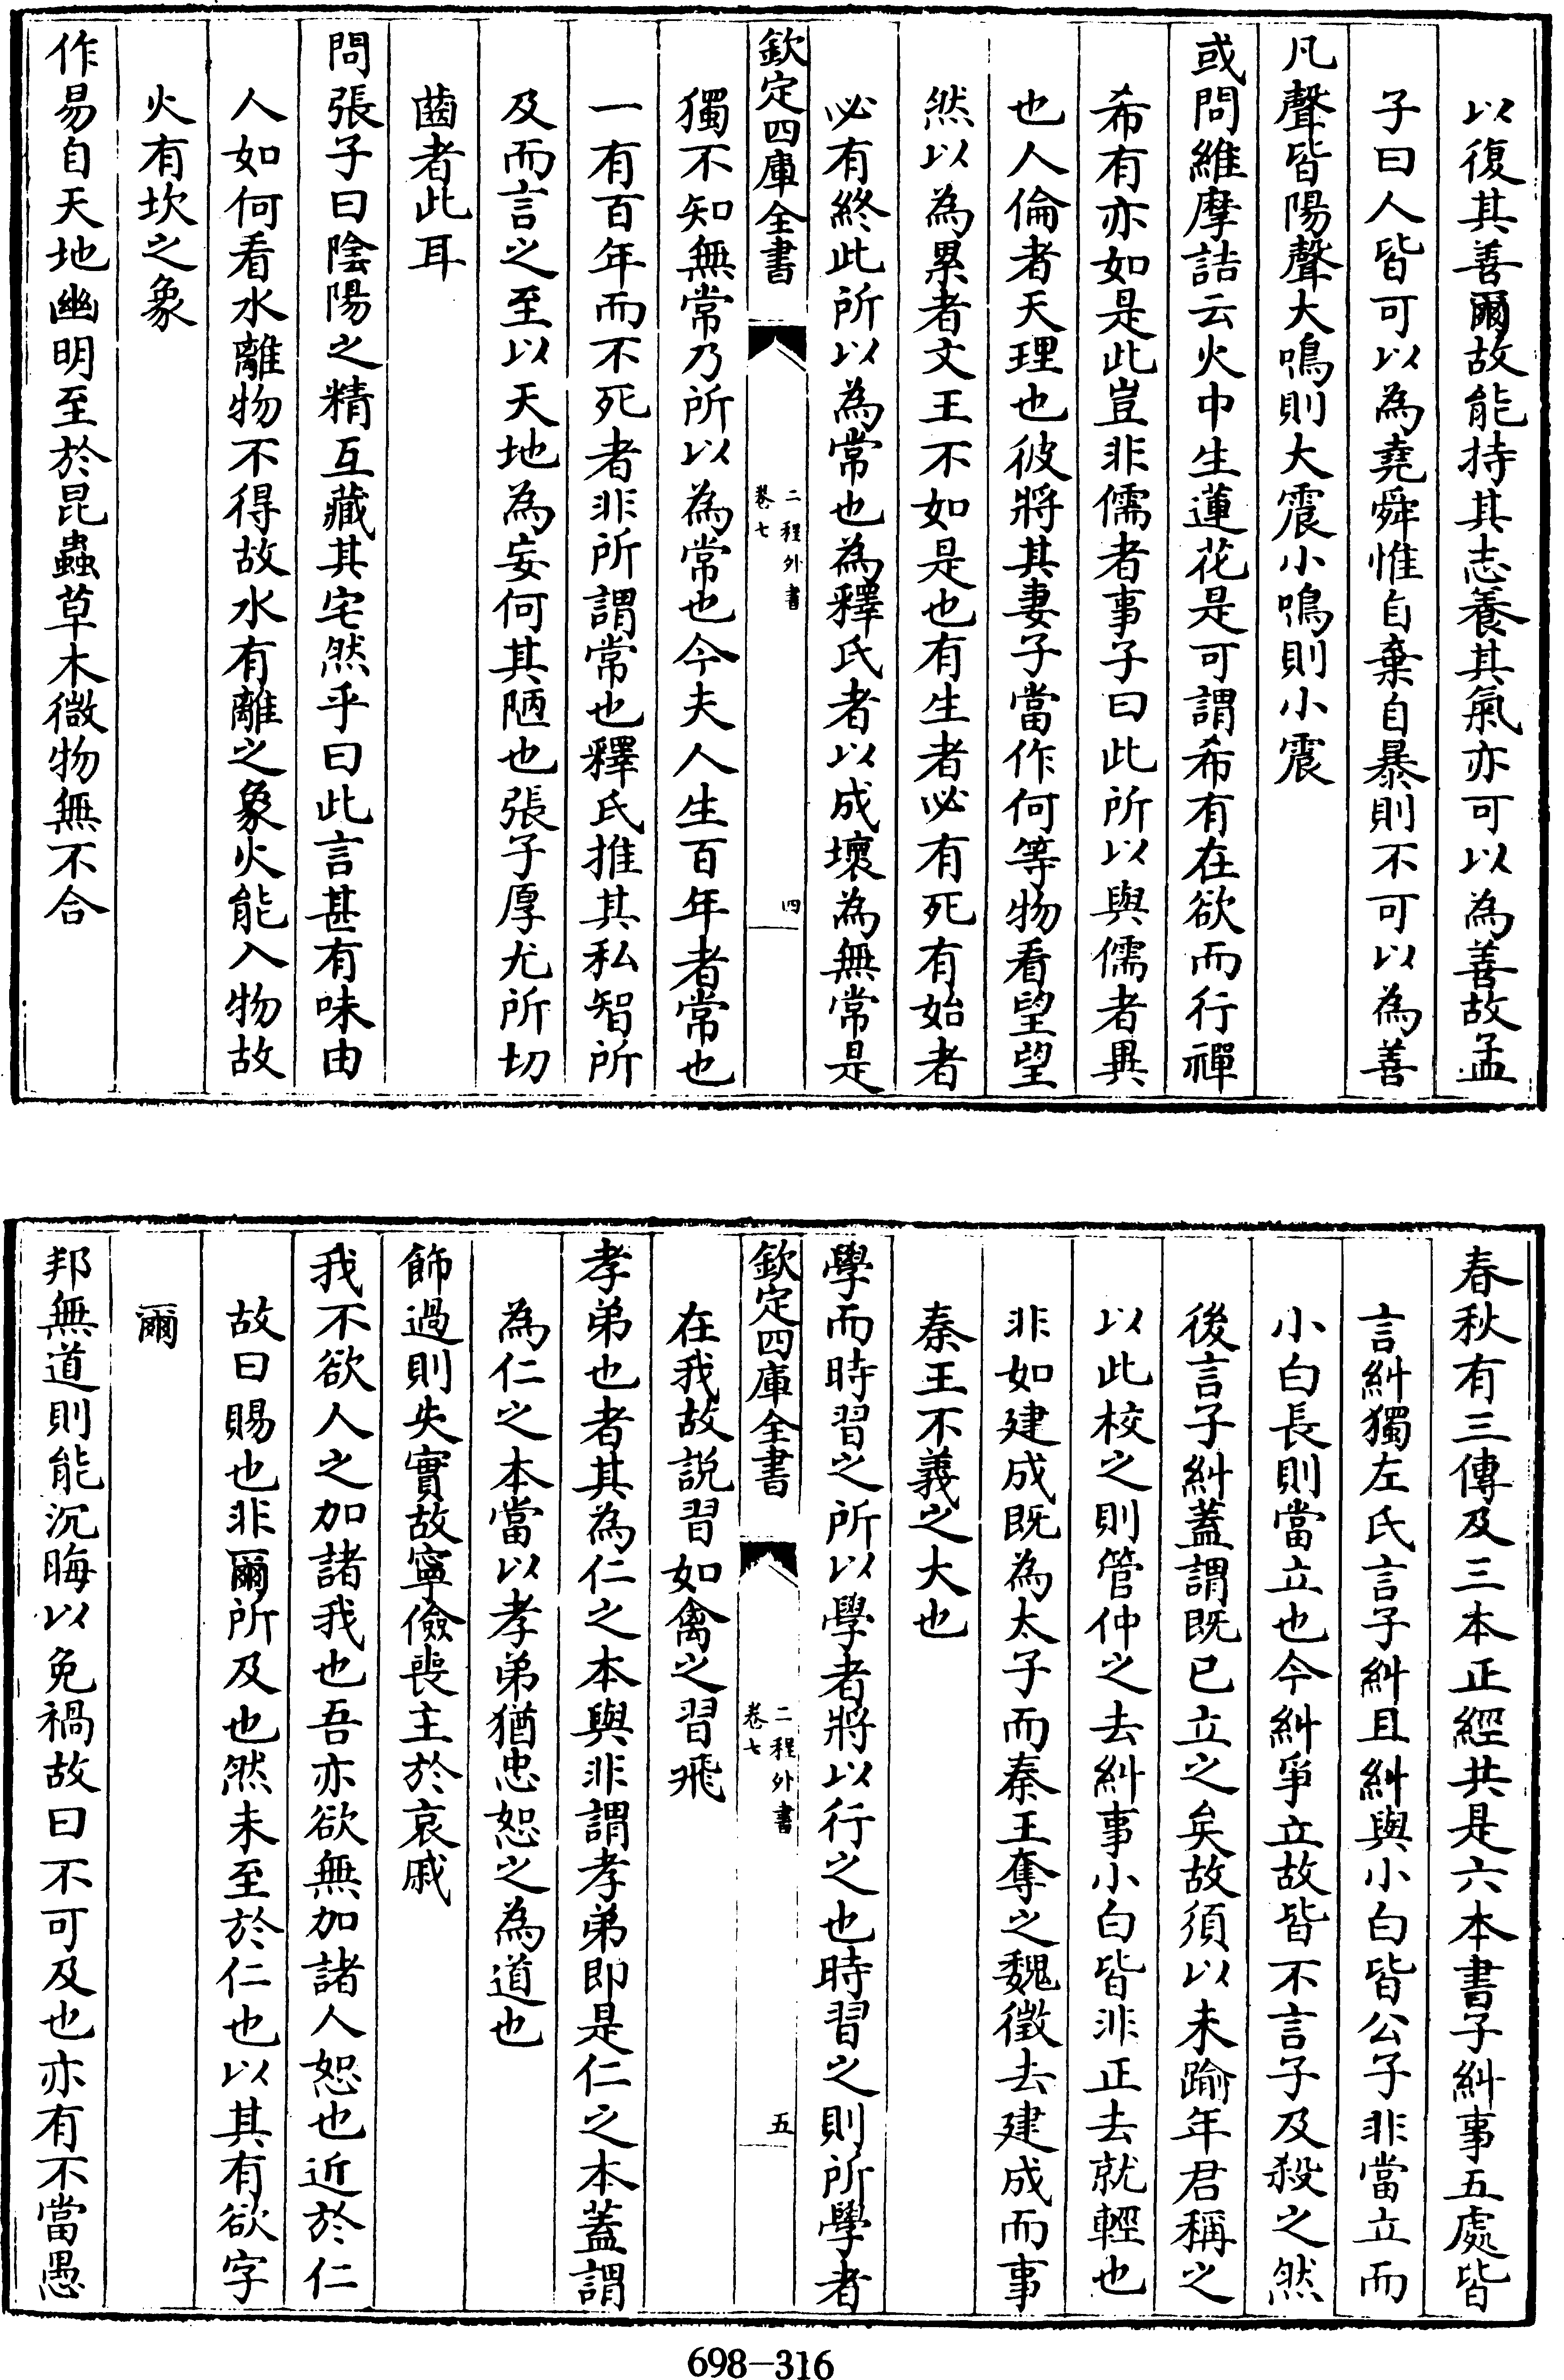 以復其善爾故能持其志養其氣亦可以為善故孟
子曰人皆可以為堯舜惟自棄自暴則不可以為善
凡聲皆陽聲大鳴則大震小鳴則小震
或問維摩詰云火中生蓮花是可謂希有在欲而行禪
希有亦如是此豈非儒者事子曰此所以與儒者異
也人倫者天理也彼將其妻子當作何等物看望望
然以為累者文王不如是也有生者必有死有始者
必有終此所以為常也為釋氏者以成壞為無常是
欽定四庫全書
二程外書
卷七
四
獨不知無常乃所以為常也今夫人生百年者常也
一有百年而不死者非所謂常也釋氏推其私智所
及而言之至以天地為妄何其陋也張子厚尤所切
齒者此耳
問張子曰陰陽之精互藏其宅然乎曰此言甚有味由
人如何看水離物不得故水有離之象火能入物故
火有坎之象
作易自天地幽明至於昆蟲草木微物無不合
春秋有三傳及三本正經共是六本書子糾事五處皆
言糾獨左氏言子糾且糾與小白皆公子非當立而
小白長則當立也今糾爭立故皆不言子及殺之然
後言子糾蓋謂既已立之矣故須以未踰年君稱之
以此校之則管仲之去糾事小白皆非正去就輕也
非如建成既為太子而秦王奪之魏徵去建成而事
秦王不義之大也
學而時習之所以學者將以行之也時習之則所學者
欽定四庫全書
二程外書
卷七
五
在我故說習如禽之習飛
孝弟也者其為仁之本與非謂孝弟即是仁之本蓋謂
為仁之本當以孝弟猶忠恕之為道也
飾過則失實故寧儉喪主於哀戚
我不欲人之加諸我也吾亦欲無加諸人恕也近於仁
故曰賜也非爾所及也然未至於仁也以其有欲字
爾
邦無道則能沉晦以免禍故曰不可及也亦有不當愚
698-316